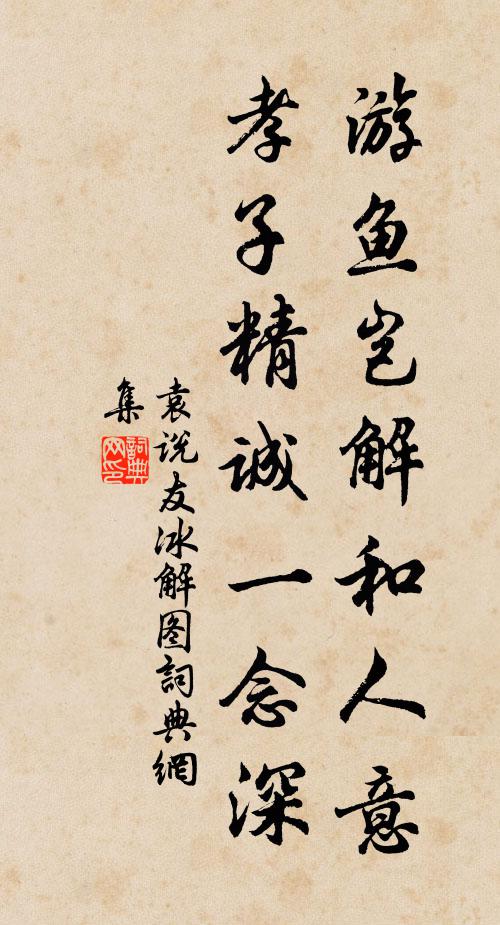 游鱼岂解和人意
孝子精诚一念深
袁说友冰解图詞典網
集
詞典网印